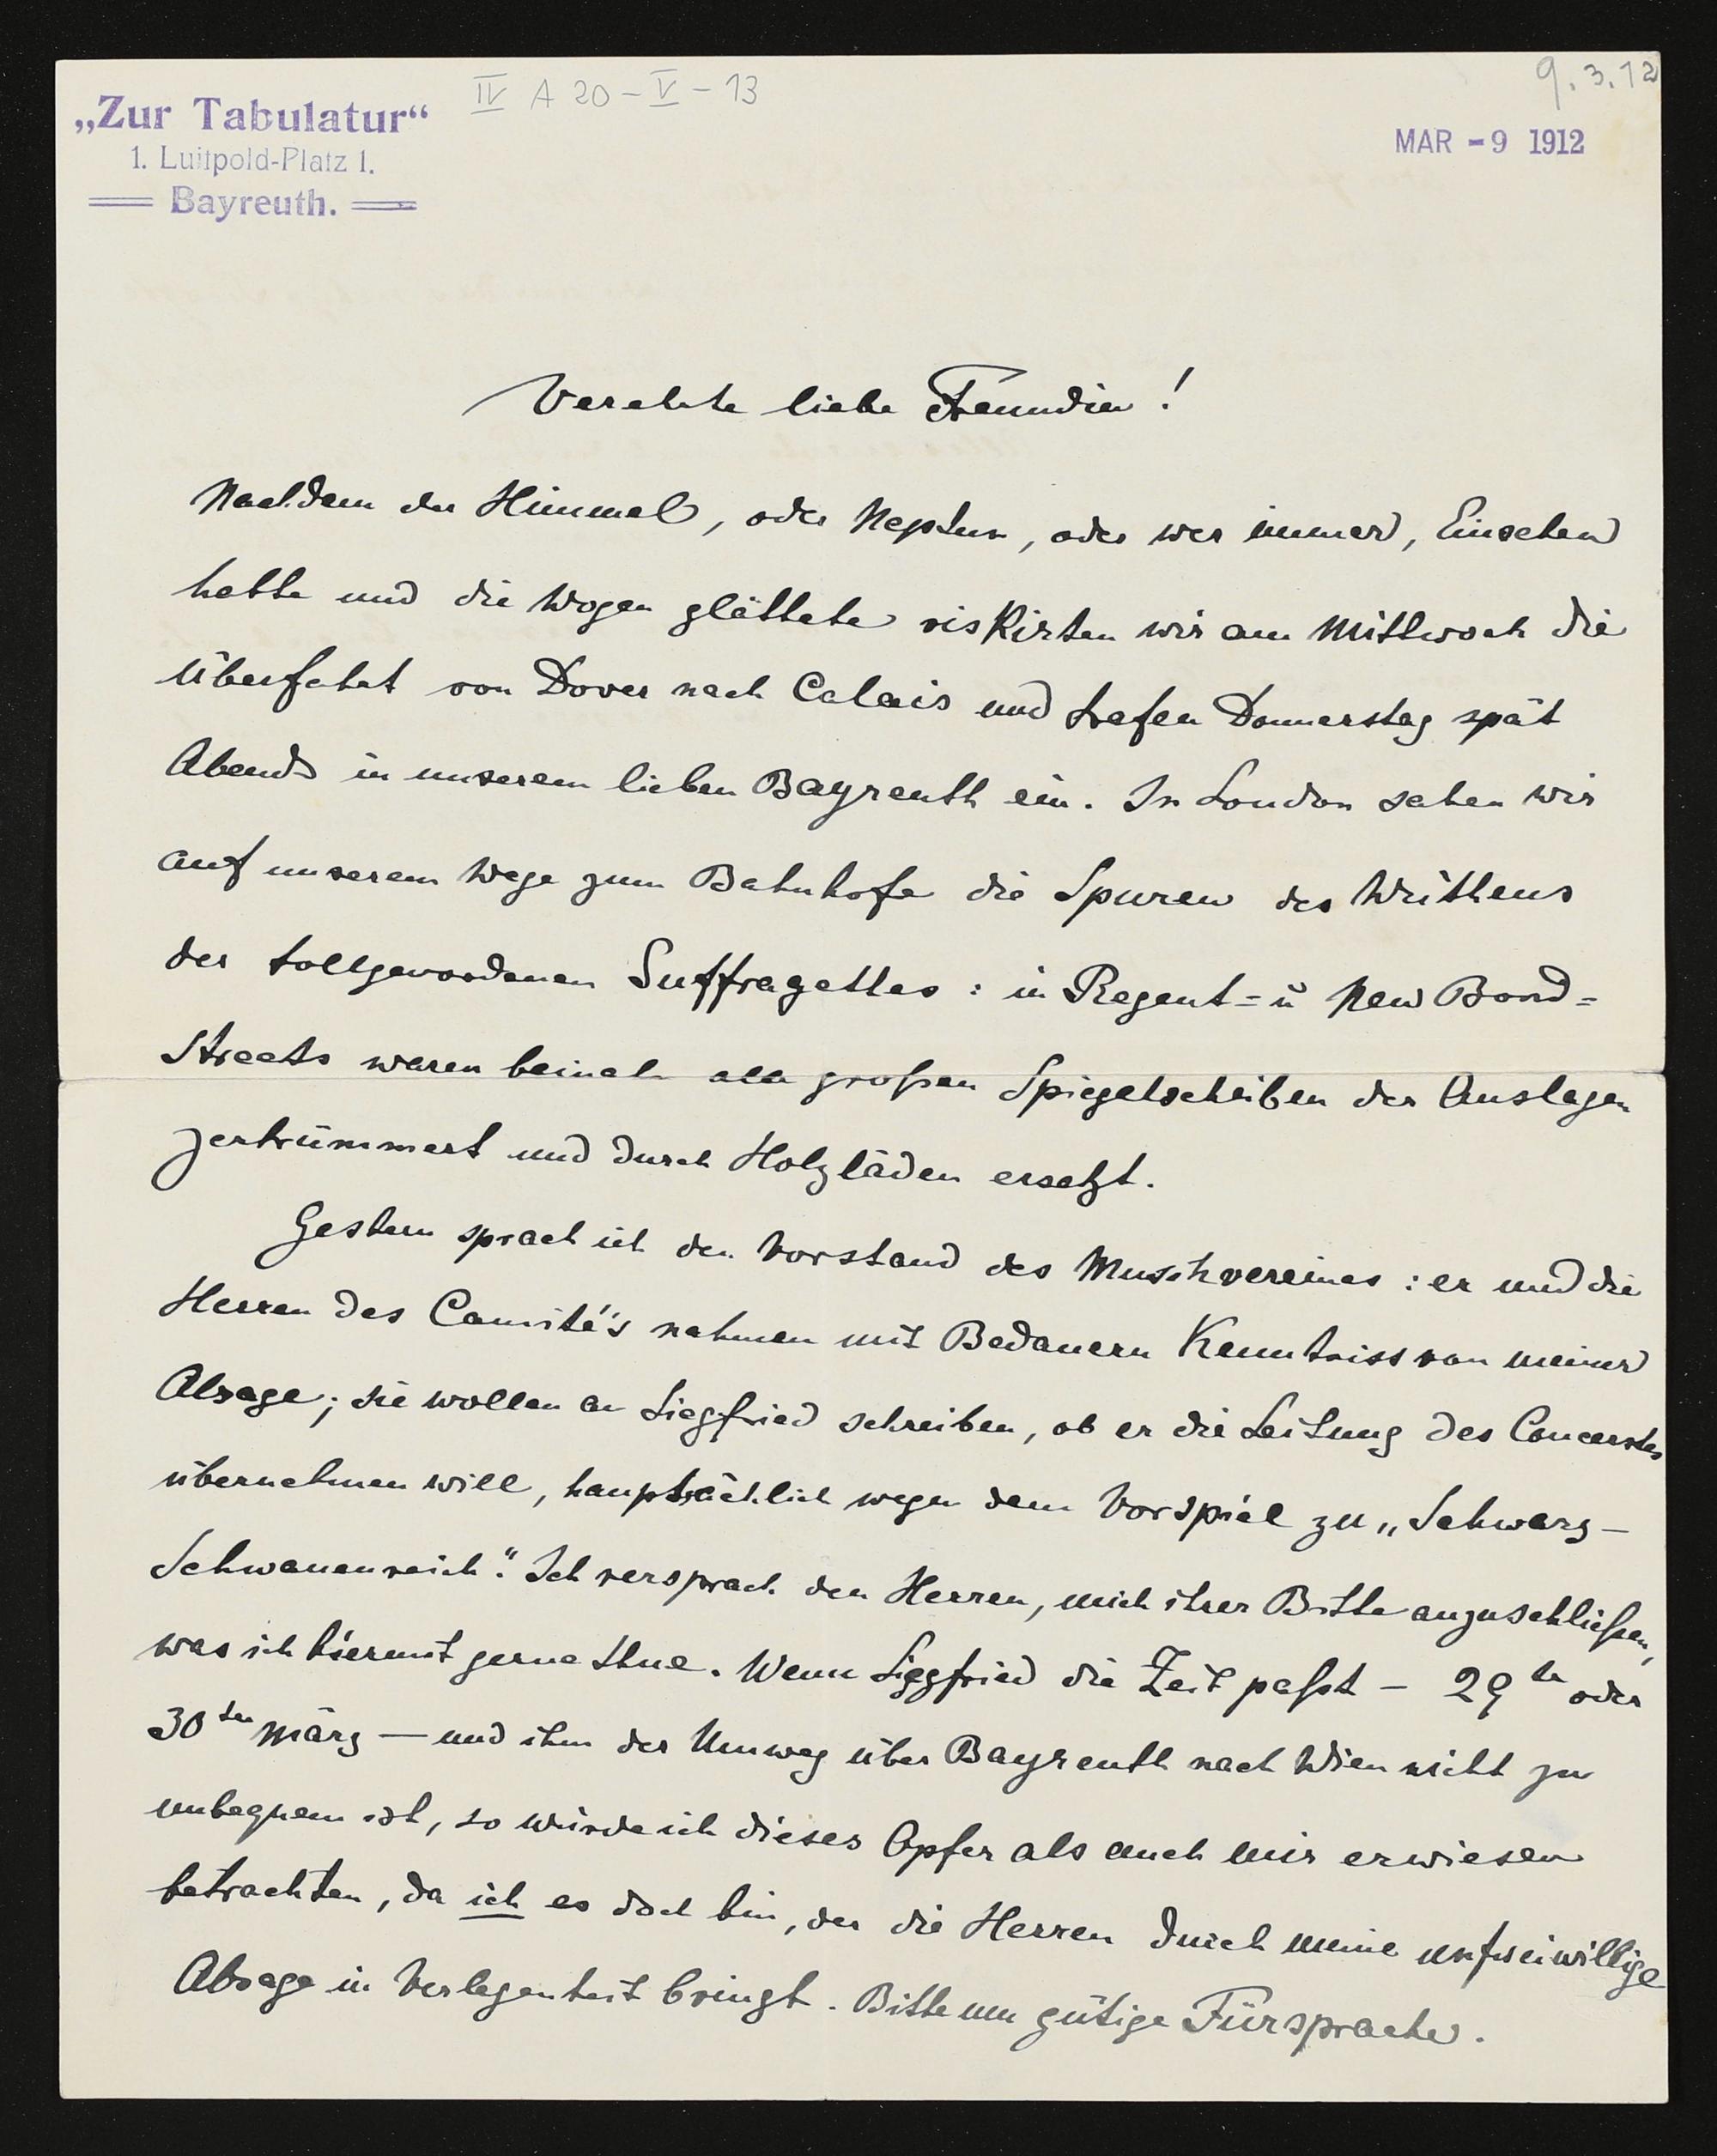 „Zur Tabulatur“
1. Luitpold-Platz 1.
Bayreuth.
IV A 20 - V - 13
9.3.12
MAR -9 1912
Verehrte liebe Freundin!
Nachdem der Himmel, oder Neptun, oder wer immer, Einsehen
hatte und die Wogen glättete riskirten wir am Mittwoch die
Überfahrt von Dover nach Calais und trafen Donnerstag spät
Abends in unserem lieben Bayreuth ein. In London sahen wir
auf unserem Wege zum Bahnhofe die Spuren des Wüthens
der tollgewordenen Suffragettes: in Regent= u New Bond=
Streets waren beinah alle großen Spiegelscheiben der Auslagen
zertrümmert und durch Holzläden ersetzt.
Gestern sprach ich den Vorstand des Musikvereines: er und die
Herren des Comité's nahmen mit Bedauern Kenntniss von meiner
Absage; sie wollen an Siegfried schreiben, ob er die Leitung des Concertes
übernehmen will, hauptsächlich wegen dem Vorspiel zu „Schwarz-
Schwanenreich“. Ich versprach den Herren, mich ihrer Bitte anzuschließen,
was ich hiermit gerne thue. Wenn Siegfried die Zeit paßt - 29te oder
30ten März — und ihm der Umweg über Bayreuth nach Wien nicht zu
unbequem ist, so würde ich dieses Opfer als auch mir erwiesen
betrachten, da ich es doch bin, der die Herren durch meine unfreiwillige
Absage in Verlegenheit bringt. Bitte um gütige Fürsprache.